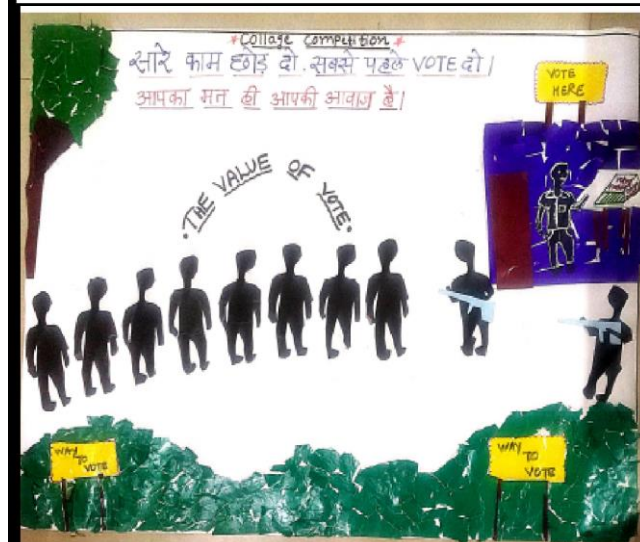 * Collage Competition *
सारे काम छोड़ दो. सबसे पहले VOTE दो।
आपका मन ही आपकी आवाज है।
VOTE
HERE
• THE VALUE OF VOTE •
WAY
TO
VOTE
WAY
TO
VOTE